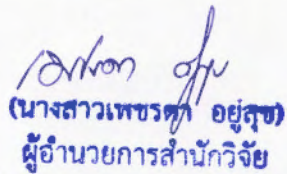 (นางสาวเพชรดา อยู่สุข)
ผู้อำนวยการสำนักวิจัย